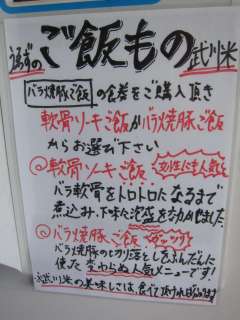 うるずの ご飯もの 武川米
バラ焼豚ご飯 の食券をご購入頂き
軟骨ソーキご飯かバラ焼豚ご飯
からお選び下さい
軟骨ソーキご飯 女性にも人気を
バラ軟骨をトロトロになるまで
煮込み、下味に泡盛を効かしました
バラ焼豚ご飯 ガッツリ
バラ焼豚の切り落としをふんだんに
使った変わらぬ人気メニューです!
武川米の美味しさは、食べて頂ければ